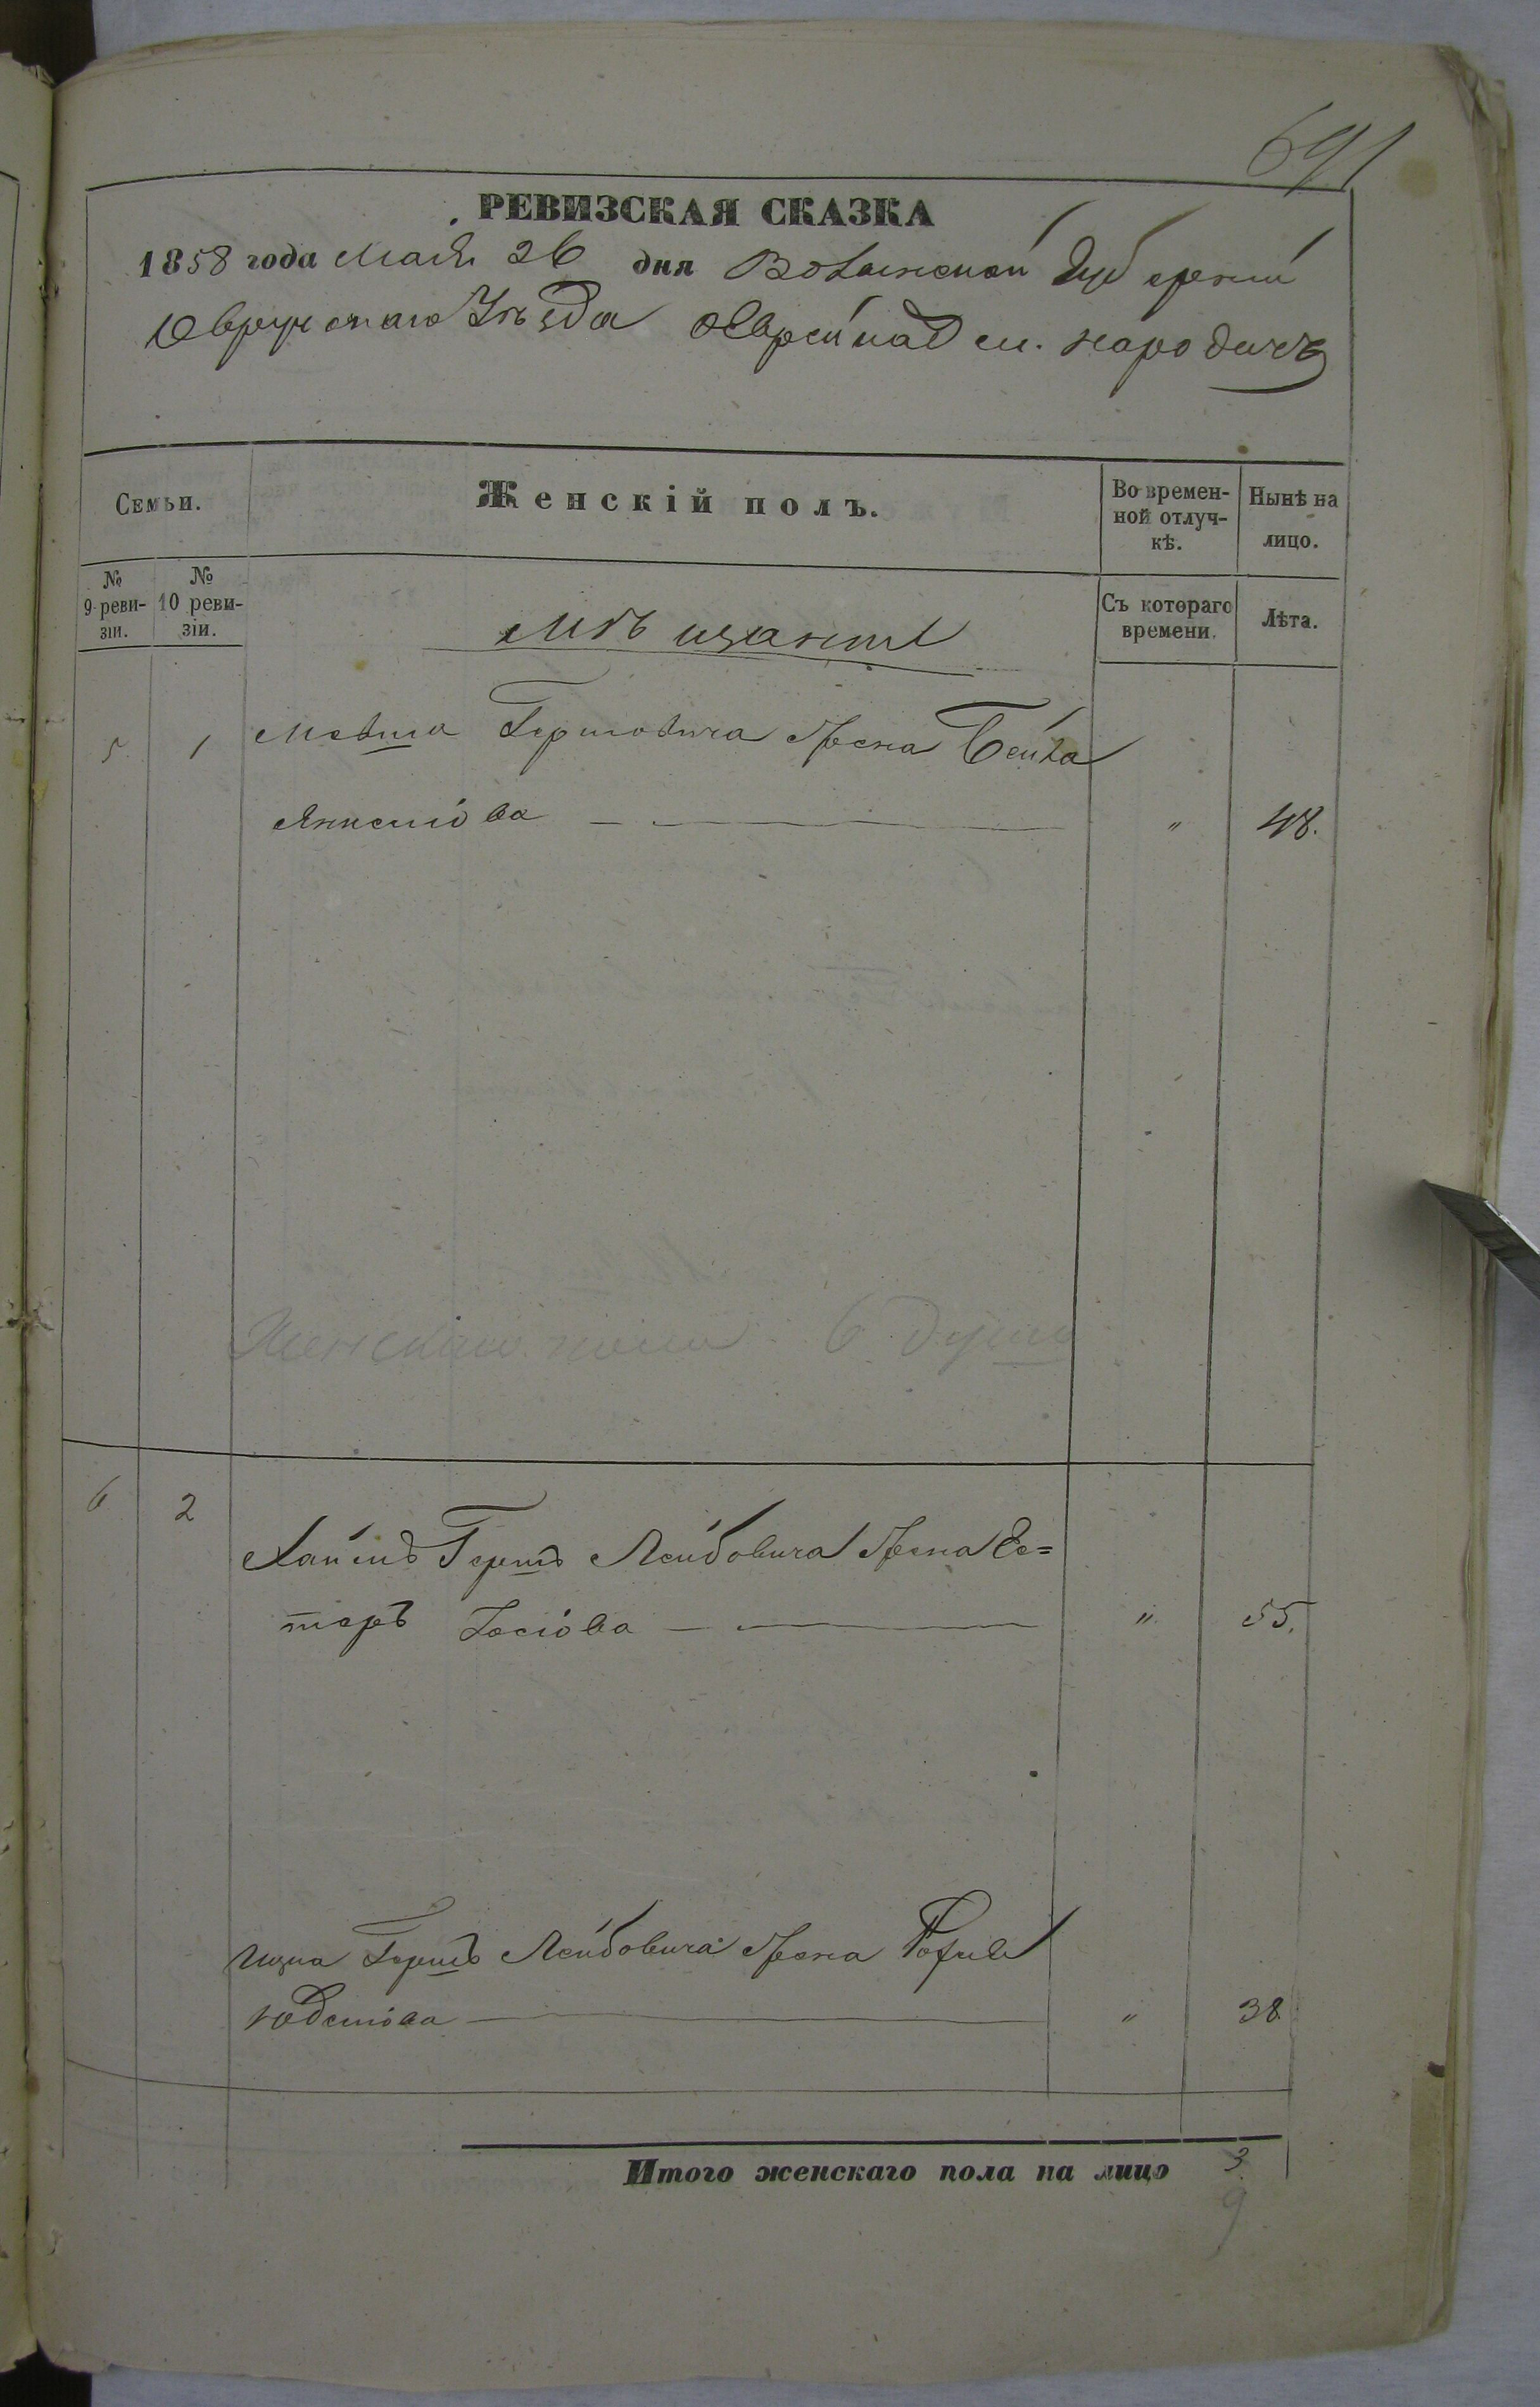 691
РЕВИЗСКАЯ СКАЗКА
1858 года Мая 26 дня Волынской Губерніи
Овручскаго Уѣзда Еврейнад м. Народичъ
Семьи.
Женскій полъ.
Во времен-
ной отлуч-
кѣ.
Нынѣ на
лицо.
№
9 реви-
зіи.
№
10 реви-
зіи.
Мѣщане
Съ котораго
времени.
Лѣта.
5 1 Гершовича Жена Бейла
Янкеліова — " 48.
Женскаго пола 6 душъ
6 2
Хаимъ Гершъ Лейбовича Жена Ес=
теръ Іосіова — " 55.
Ицка Гершъ Лейбовича Жена
— " 38.
Итого женскаго пола на лицо 3
9